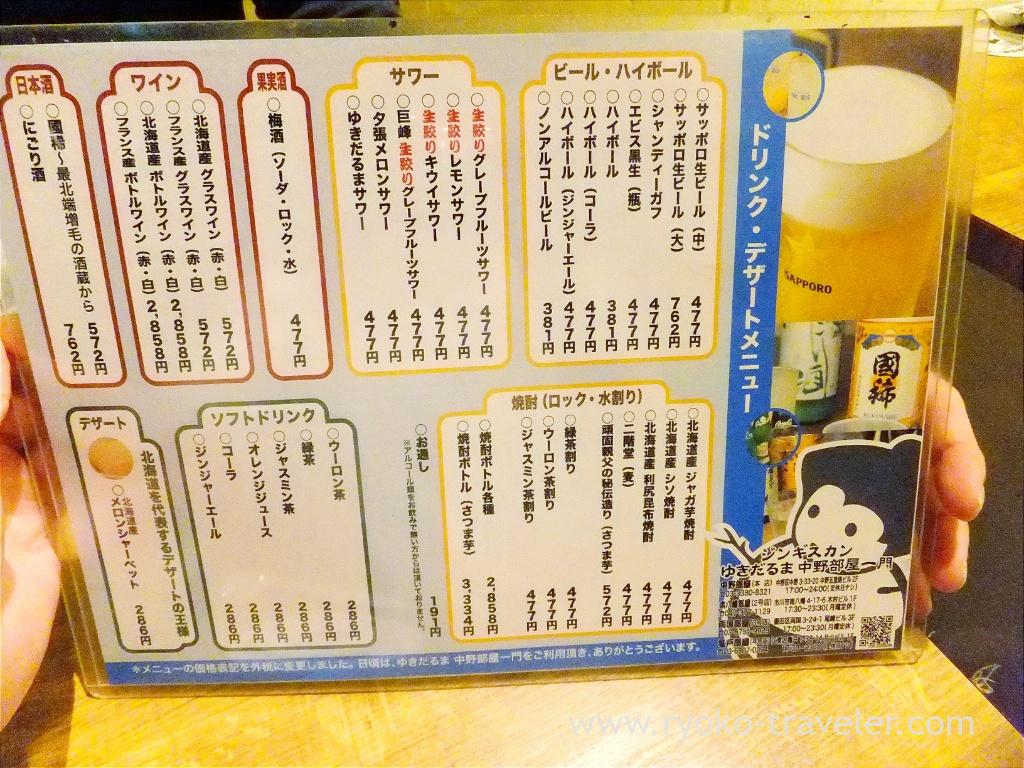 ドリンク・デザートメニュー
SAPPORO
國稀
ビール・ハイボール
○サッポロ生ビール（中） 477円
○サッポロ生ビール（大） 762円
○シャンディーガフ 477円
○エビス黒生（瓶） 477円
○ハイボール 381円
○ハイボール（コーラ） 477円
○ハイボール（ジンジャーエール） 477円
○ノンアルコールビール 381円
サワー
○生絞りグレープフルーツサワー 477円
○生絞りレモンサワー 477円
○生絞りキウイサワー 477円
○巨峰 生絞りグレープフルーツサワー 477円
○夕張メロンサワー 477円
○ゆきだるまサワー 477円
果実酒
○梅酒（ソーダ・ロック・水） 477円
ワイン
○北海道産 グラスワイン（赤・白） 572円
○フランス産 グラスワイン（赤・白） 572円
○北海道産 ボトルワイン（赤・白） 2,858円
○フランス産 ボトルワイン（赤・白） 2,858円
日本酒
○國稀〜最北端増毛の酒蔵から 572円
○にごり酒 762円
焼酎（ロック・水割り）
○北海道産 ジャガ芋焼酎 477円
○北海道産 シソ焼酎 477円
○北海道産 利尻昆布焼酎 477円
○二階堂（麦） 477円
○頑固親父の秘伝造り（さつま芋） 572円
○緑茶割り 477円
○ウーロン茶割り 477円
○ジャスミン茶割り 477円
○焼酎ボトル各種 2,858円
○焼酎ボトル（さつま芋） 3,334円
○お通し 191円
※アルコール類をお飲みで無い方からは頂いておりません。
ソフトドリンク
○ウーロン茶 286円
○緑茶 286円
○ジャスミン茶 286円
○オレンジジュース 286円
○コーラ 286円
○ジンジャーエール 286円
デザート
北海道を代表するデザートの王様
○北海道産 メロンシャーベット 286円
ジンギスカン
ゆきだるま 中野部屋一門
中野部屋(本 店) 中野区中野 3-33-20 中野五差路ビル 2F
17:00〜24:00(定休日ナシ)
市川市南八幡 4-17-6 木村ビル 1F
17:30〜23:30(月曜定休)
墨田区両国 3-24-1 尾崎ビル 3F
17:00〜23:30(月曜定休)
＊メニューの価格表記を外税に変更しました。日頃は、ゆきだるま 中野部屋一門をご利用頂き、ありがとうございます。
www.ryoko-traveler.com